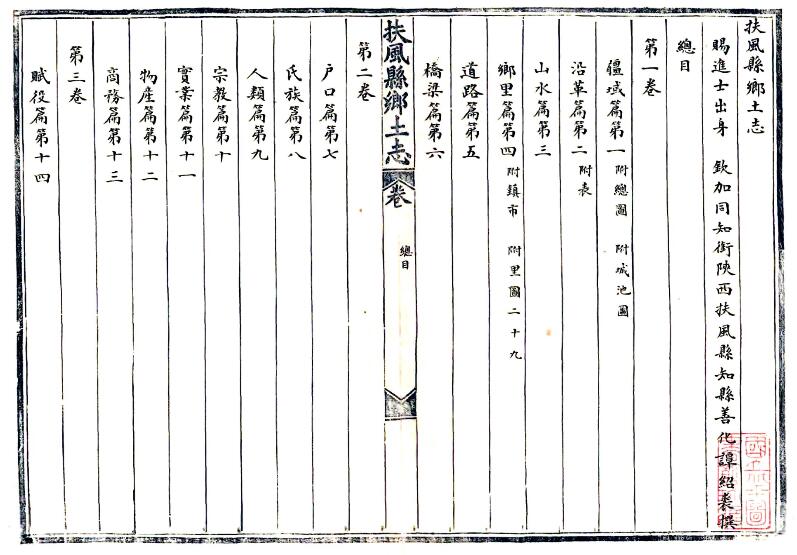 扶風縣鄉土志
賜進士出身 欽加同知銜陝西扶風縣知縣善化譚紹裘撰
總目
第一卷
疆域篇第一 附總圖 附城池圖
沿革篇第二 附表
山水篇第三
鄉里篇第四 附鎮市 附里圖二十九
道路篇第五
橋梁篇第六
扶風縣鄉土志 卷 總目
第二卷
户口篇第七
氏族篇第八
人類篇第九
宗教篇第十
實業篇第十一
物産篇第十二
商務篇第十三
第三卷
賦役篇第十四